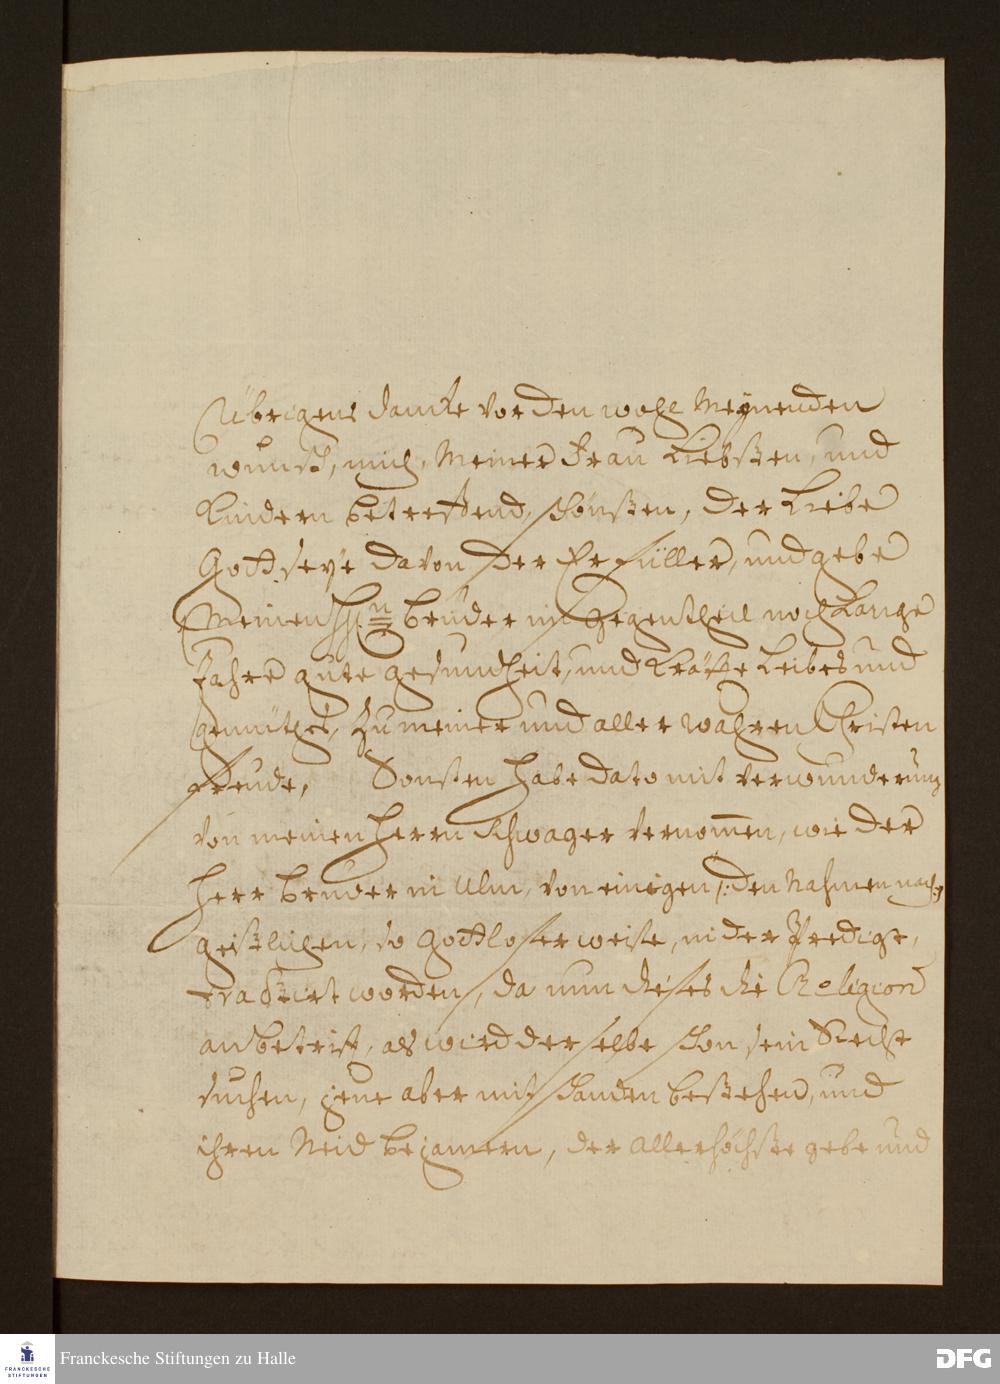 Übrigens dancke vor den wohl Meÿnenden
wunsch, mich, Meiner Frau Liebsten, und
Kindern betreffend, schönsten, der Liebe
Gott seÿe davon der Erfüller, und gebe
Meinen hh: n Brüder im gegentheil noch Lange
Jahre gute gesundheit, und kräffte Leibes und
Gemüthes, Zu meiner und aller wahren Christen
freude, Sonsten habe dato mit verwunderung
von meinen Herrn Schwager vernom̄en, wie der
Herr Bruder in Ulm, von einigen /: den Nahmen nach :/
geistlichen, so gottloser weise, in der Predigt,
tractirt worden, da nun dieses die Religion
anbetrift, als wird derselbe schon sein Recht
suchen, jene aber mit schanden bestehen, und
ihren Neid bejam̄ern, der allerhöchste gebe und
Franckesche Stiftungen zu Halle
FRANCKESCHE
STIFTUNGEN
DFG